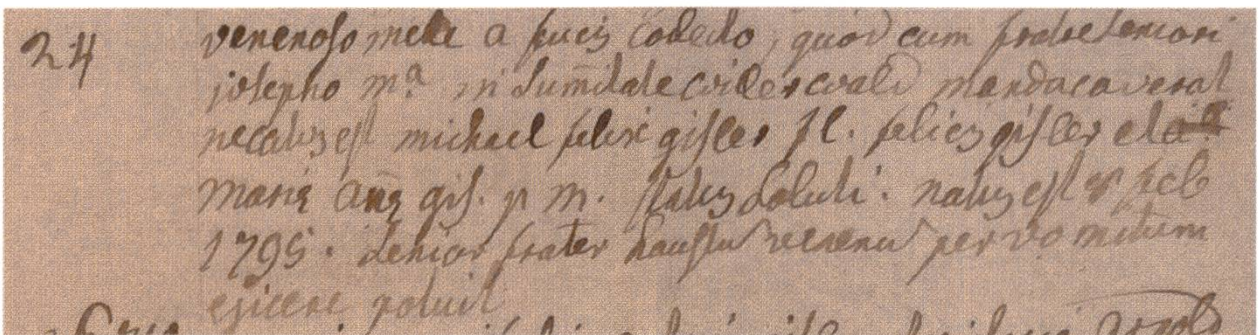 24 venenoso melle a fucis collecto, quod cum fratre seniori
josepho m.ª in sum̄itate wilerwald manducaverat
necatus est michael felix gisler fl. felicis gisler et
mariæ añæ gis. p m. status soluti. natus est 8 feb
1795. senior frater haustu venenu per vomitum
ejicere potuit